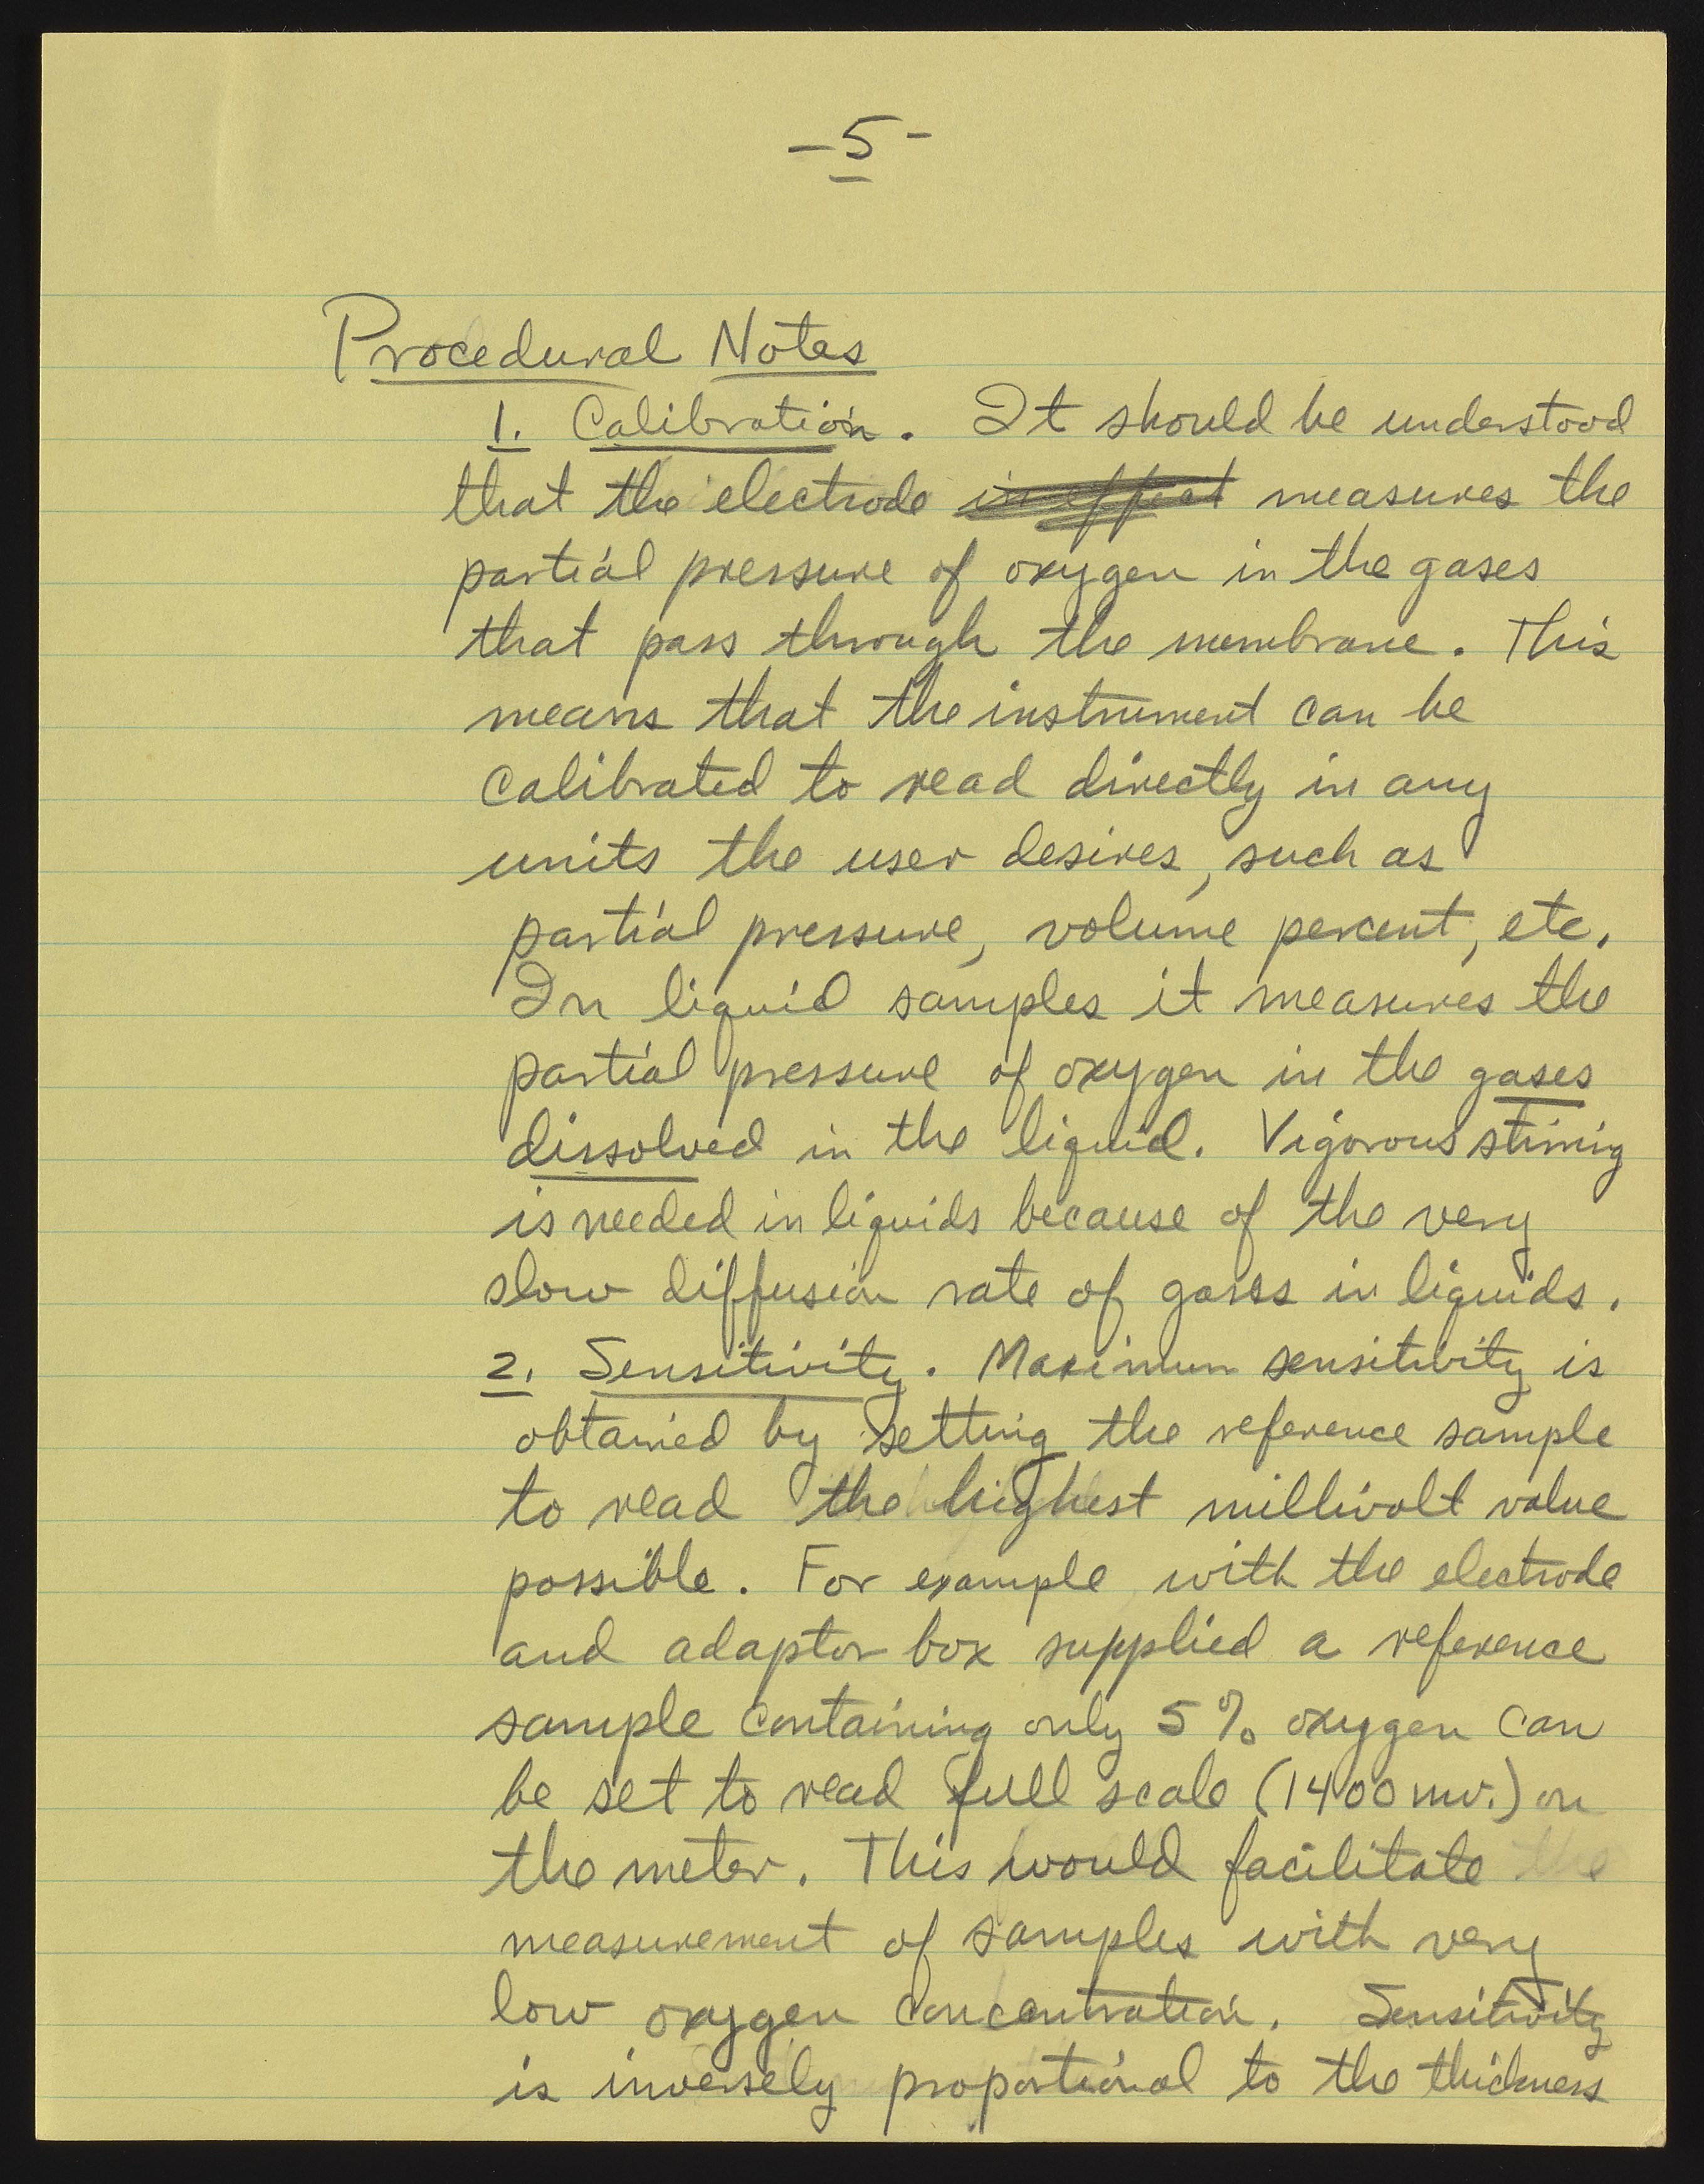 -5-
Procedural Notes
1. Calibration. It should be understood
that the electrode in effect measures the
partial pressure of oxygen in the gases
that pass through the membrane. This
means that the instrument can be
calibrated to read directly in any
units the user desires, such as
partial pressure, volume percent, etc.
In liquid samples it measures the
partial pressure of oxygen in the gases
dissolved in the liquid. Vigorous stirring
is needed in liquids because of the very
slow diffusion rate of gases in liquids.
2. Sensitivity. Maximum sensitivity is
obtained by setting the reference sample
to read the highest millivolt value
possible. For example, with the electrode
and adaptor box supplied a reference
sample containing only 5% oxygen can
be set to read full scale (1400 mv.) on
the meter. This would facilitate the
measurement of samples with very
low oxygen concentration. Sensitivity
is inversely proportional to the thickness